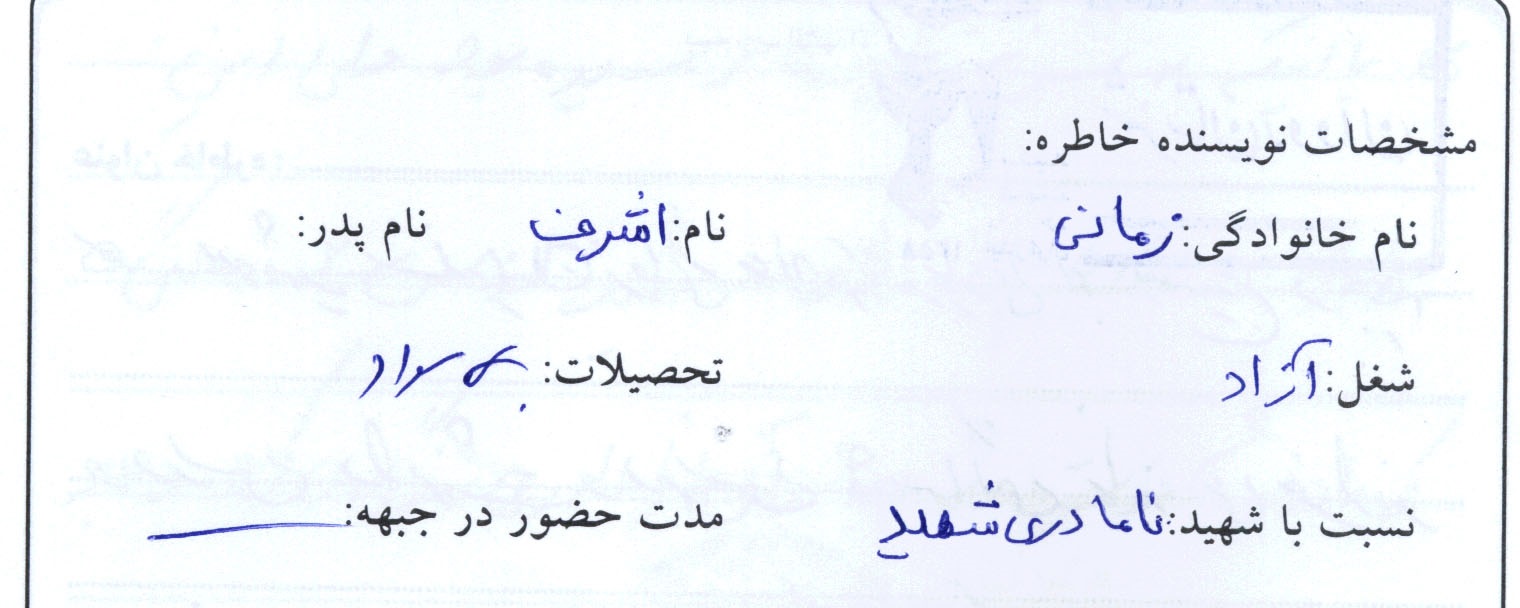 مشخصات نویسنده خاطره:
نام خانوادگی: زمانی نام: اشرف نام پدر:
شغل: آزاد تحصیلات: بی سواد
نسبت با شهید: نامادری شهید مدت حضور در جبهه: